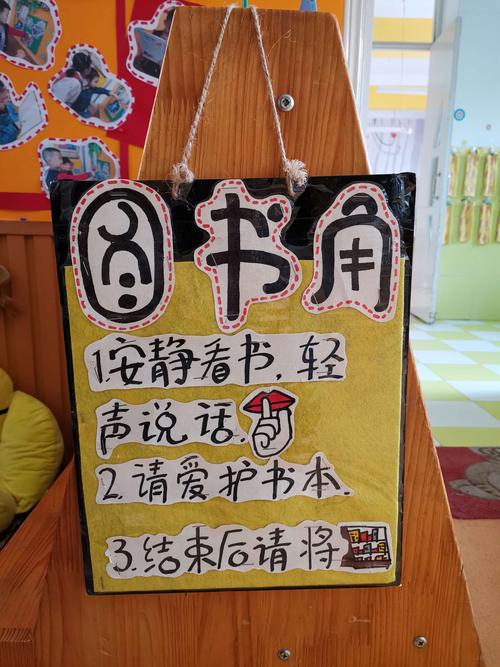 图书角
1.安静看书,轻
声说话.
2.请爱护书本.
3.结束后请将